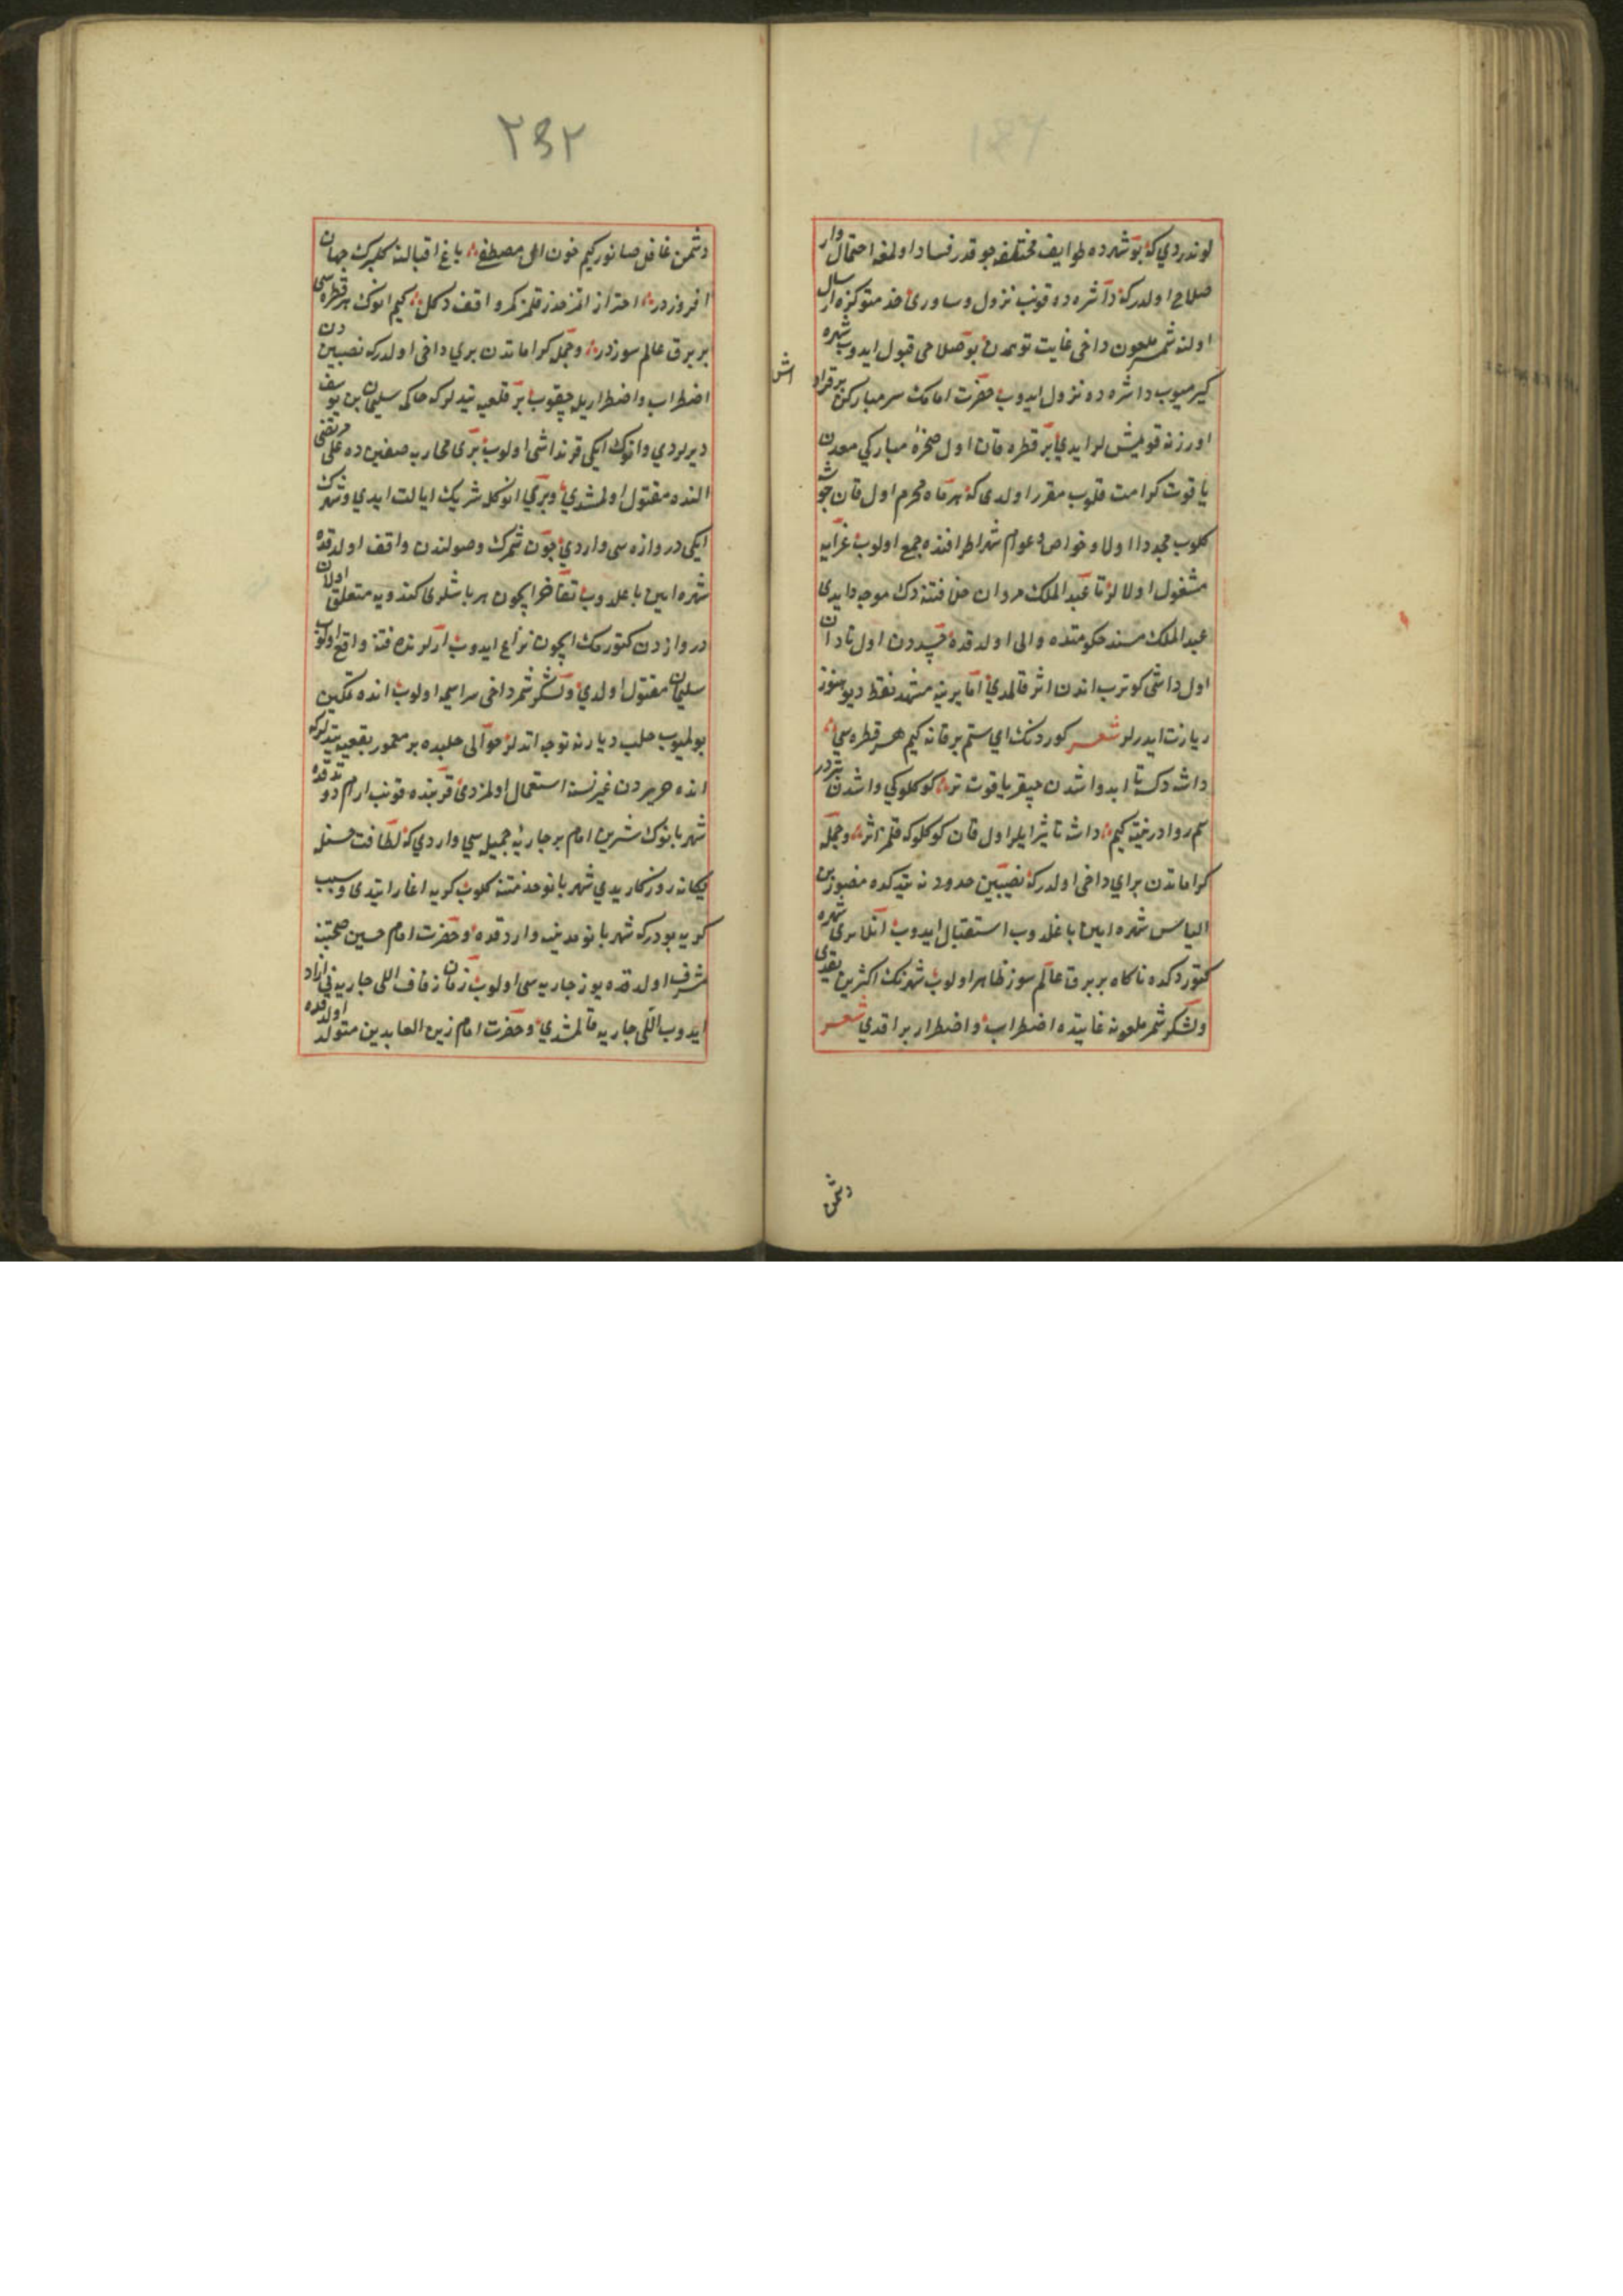 لوندردي كه بو شهرده طوايف مختلفه چوقدر فساد اولمغه احتمال وار
صلاح اولدركه داشره ده قونب نزول و ساوري خدمتوكزه ارسال
اولنه شمر ملعون داخى غايت توهمدن بو صلاحى قبول ايدوب شهره
كيرميوب داشره ده نزول ايدوب حضرت امامك سر مباركن بر قرا
اش
اوززنه قومش لر ايدي بر قطره قان اول صخره مباركي معدن
ياقوت كرامت قلوب مقرر اولدى كه هر ماه محرم اول قان جوشه
كلوب مجددا اولا و خواص و عوام شهر اطرافنده جمع اولوب عزايه
مشغول اولالر تا عبد الملك مروان خلافتنه دك موجود ايدى
عبد الملك مسند حكومتده والى اولدقده
اول داشى كوترب اندن اثر قالمدي اما يرينه مشهد نقط ديو هنوز
زيارت ايدرلر شعر كوردنك اي ستم بر قانه كيم هر قطره سي
داشه دكسه تا ابد داشدن چيقر ياقوت تر كوكلوكي داشدن بتردر
كيم داشه تاثير ايلر اول قان كوكلوكه قلمز اثر و جمله
كراماتدن براي داخى اولدركه نصيبين حدودنه يتدكده منصور بن
الياس شهره ايين باغلدوب استقبال ايدوب انلاري شهره
كتوردكده ناكاه بر برق عالم سوز ظاهر اولوب شهرنك اكثرين يقدى
و لشكر شمر ملعونه غايتده اضطراب و اضطرار براقدي شعر
دشمن
٢٣٢
دشمن غافل صانور كيم خون ال مصطفى باغ اقبالنه كلبرك جهان
افروزدر احتراز اتمز حذر قلمز مكر واقف دكل كيم انوك هر قطره سى
بر برق عالم سوزدر و جمله كراماتدن بري داخى اولدركه نصيبين دن
اضطراب و اضطرار يله چيقوب بر قلعيه يتدلر كه حاكمه سليمان بن يوسف
ديرلردي و انوك ايكى قرنداشى اولوب برى محاربه صفين ده على مرتضى
النده مقتول اولمشدي و بري انوكله شريك ايالت ايدي و شهرك
ايكى دروازه سى واردي چون شمرك وصولندن واقف اولدقده
شهره ايين باغلدوب تفاخر ايچون هر باشلرى كندويه متعلق اولان
دروازه دن كتورمك ايچون نزاع ايدوب ارالرنده فتنه واقع اولوب
سليمان مقتول اولدي و لشكر شمر داخى سراسيمه اولوب انده تمكين
بولميوب حلب ديارنه توجه اتدلر حوالى حلبده بر معمور بقعيه يتدلر كه
انده حريردن غير نسنه استعمال اولمزدى قربنده قونب ارام
شهربانوك شيرين نام بر جاريه جميله سي واردي كه لطافت حسنله
يكانه روزكاريدي شهربانو خدمتنه كلوب كريه اغاز ايتدى و سبب
كريه بودركه شهربانو مدينيه وارد قده و حضرت امام حسين صحبتنه
مشرف اولدقده يوز جاريه سى اولوب زمان زفاف اللى جاريه نى ازاد
ايدوب اللى جاريه قالمشدي و حضرت امام زين العابدين متولد اولدقده